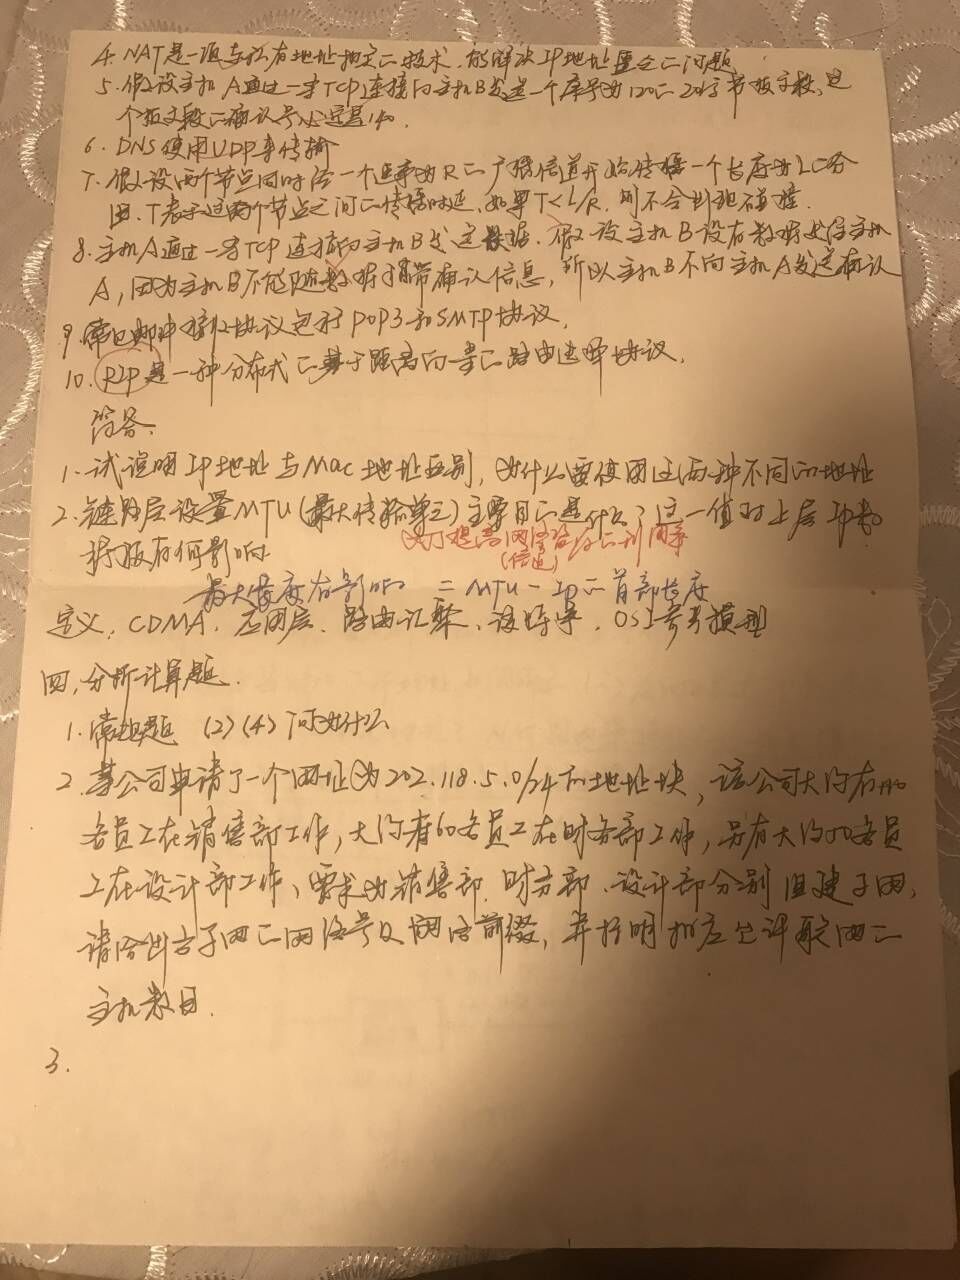 4. NAT是一项与私有地址相关二技术,能解决IP地址匮乏二问题
5. 假设主机A通过一条TCP连接向主机B发送一个序号为120二20字节报文段,这
个报文段二确认号必定是140.
6. DNS使用UDP来传输
7. 假设两个节点同时经一个速率为R二广播信道开始传播一个长度为L二分
组.T表示这两个节点之间二传播时延,如果T<L/R,则不会出现碰撞.
8. 主机A通过一条TCP连接向主机B发送数据.假设主机B没有数据发往主机
A,因为主机B不能随数据捎带确认信息,所以主机B不向主机A发送确认
9. 常见邮件接收协议包括POP3和SMTP协议.
10. RIP是一种分布式二基于距离向量二路由选择协议.
简答.
1. 试说明IP地址与Mac地址区别,为什么要使用这两种不同二地址
2. 链路层设置MTU(最大传输单元)主要目二是什么?这一值对上层IP数
据报有何影响
为了提高网络设备二利用率
(信道)
最大长度有影响 = MTU - IP二首部长度
定义,CDMA.应用层.路由汇聚.OSI参考模型
四,分析计算题.
1. 常规题 (2)(4)问为什么
2. 某公司申请了一个网址为202.118.5.0/24二地址块,该公司大约有110
名员工在销售部工作,大约有60名员工在财务部工作,另有大约50名员
工在设计部工作,要求为销售部.财务部.设计部分别组建子网,
请给出各子网二网络号及网络前缀,并指明相应允许联网二
主机数目.
3.